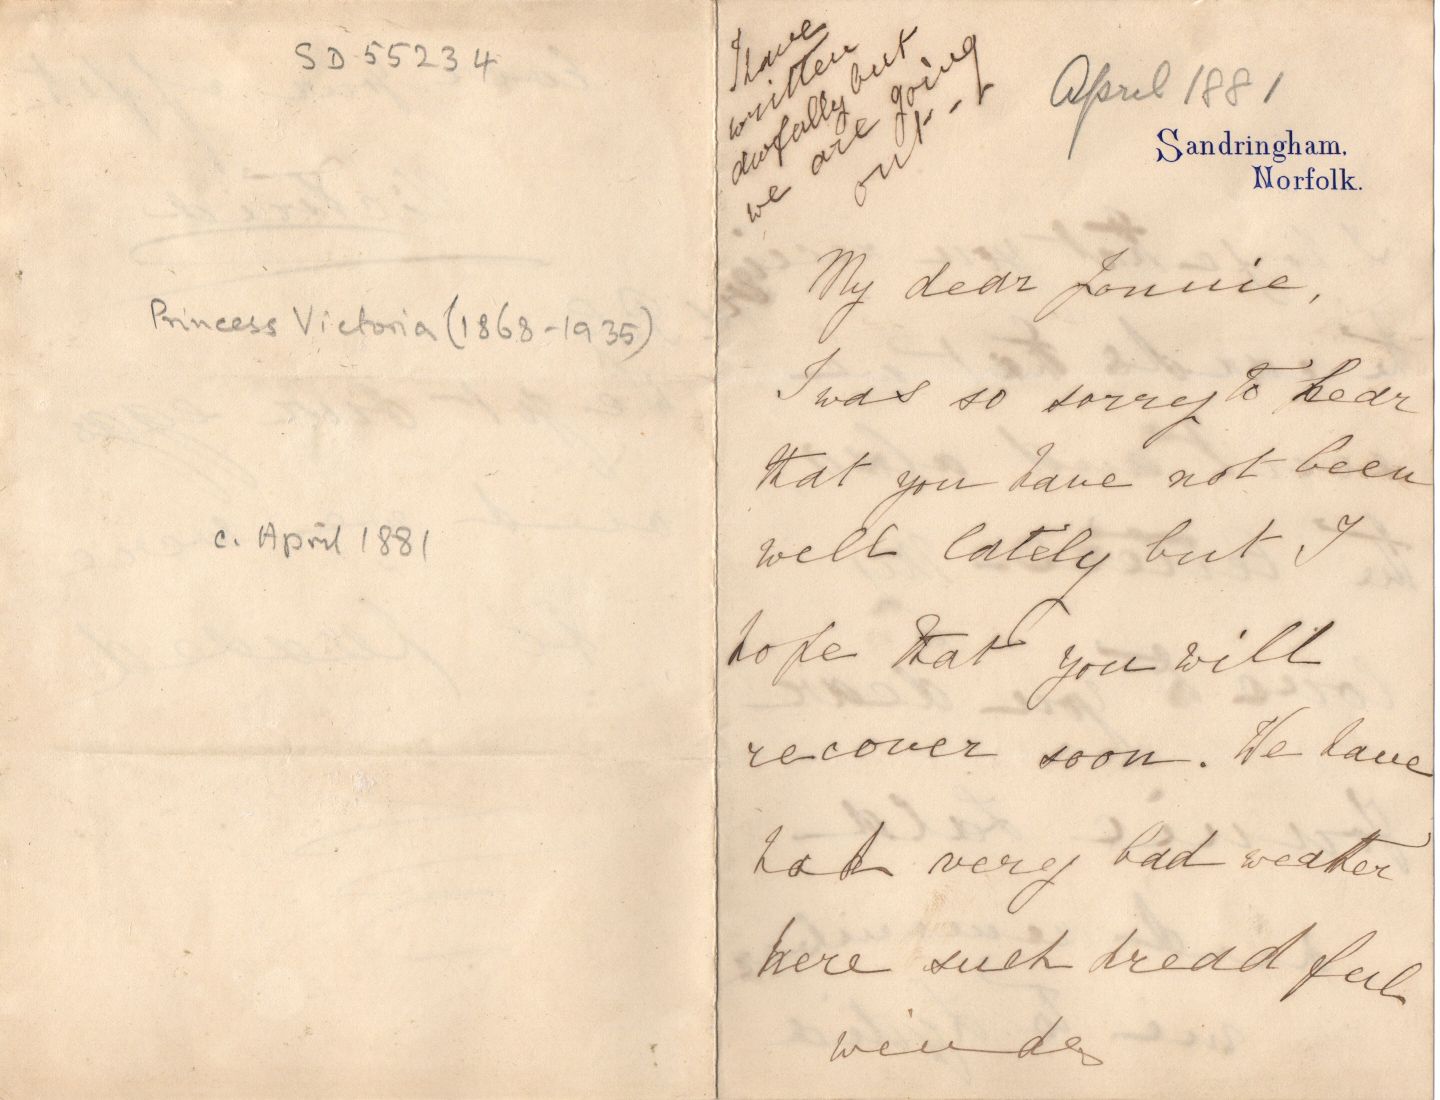 SD 55234
Princess Victoria (1868-1935)
c. April 1881
I have
written
awfully but
we are going
out - -
April 1881
Sandringham.
Norfolk.
My dear Fonnie,
I was so sorry to hear
that you have not been
well lately but I
hope that you will
recover soon. We have
had very bad weather
here such dreadful
windes